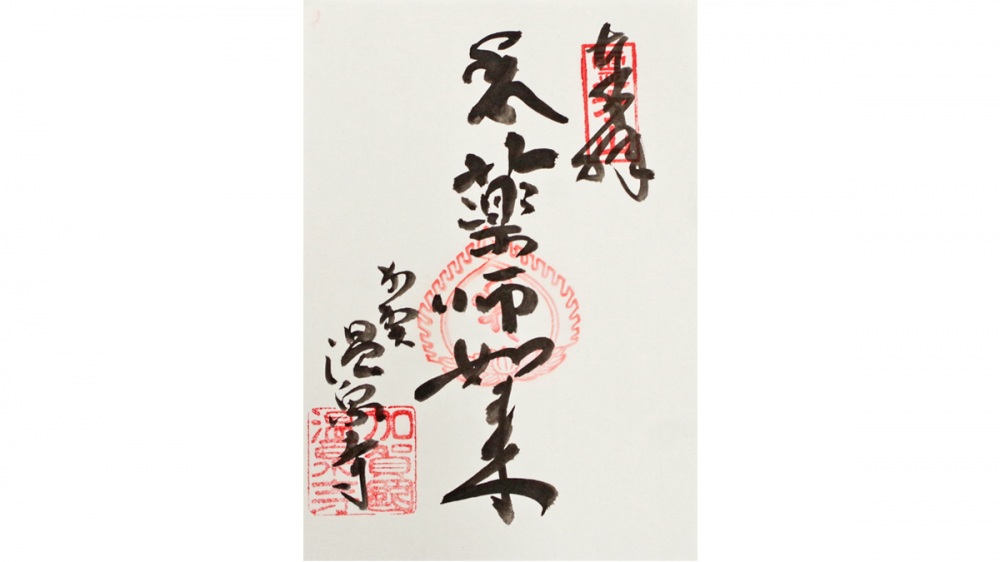 奉拝
薬師如来
加賀
温泉寺
加賀國
温泉寺